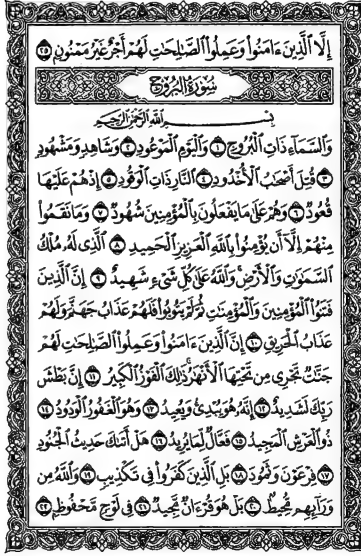 إِلَّا ٱلَّذِينَ ءَامَنُوا۟ وَعَمِلُوا۟ ٱلصَّـٰلِحَـٰتِ لَهُمْ أَجْرٌ غَيْرُ مَمْنُونٍۭ ٢٥
سُورَةُ ٱلْبُرُوجِ
بِسْمِ ٱللَّهِ ٱلرَّحْمَـٰنِ ٱلرَّحِيمِ
وَٱلسَّمَآءِ ذَاتِ ٱلْبُرُوجِ ١ وَٱلْيَوْمِ ٱلْمَوْعُودِ ٢ وَشَاهِدٍ وَمَشْهُودٍ
٣ قُتِلَ أَصْحَـٰبُ ٱلْأُخْدُودِ ٤ ٱلنَّارِ ذَاتِ ٱلْوَقُودِ ٥ إِذْ هُمْ عَلَيْهَا
قُعُودٌ ٦ وَهُمْ عَلَىٰ مَا يَفْعَلُونَ بِٱلْمُؤْمِنِينَ شُهُودٌ ٧ وَمَا نَقَمُوا۟
مِنْهُمْ إِلَّآ أَن يُؤْمِنُوا۟ بِٱللَّهِ ٱلْعَزِيزِ ٱلْحَمِيدِ ٨ ٱلَّذِى لَهُۥ مُلْكُ
ٱلسَّمَـٰوَٰتِ وَٱلْأَرْضِ وَٱللَّهُ عَلَىٰ كُلِّ شَىْءٍ شَهِيدٌ ٩ إِنَّ ٱلَّذِينَ
فَتَنُوا۟ ٱلْمُؤْمِنِينَ وَٱلْمُؤْمِنَـٰتِ ثُمَّ لَمْ يَتُوبُوا۟ فَلَهُمْ عَذَابُ جَهَنَّمَ وَلَهُمْ
عَذَابُ ٱلْحَرِيقِ ١٠ إِنَّ ٱلَّذِينَ ءَامَنُوا۟ وَعَمِلُوا۟ ٱلصَّـٰلِحَـٰتِ لَهُمْ
جَنَّـٰتٌ تَجْرِى مِن تَحْتِهَا ٱلْأَنْهَـٰرُ ذَٰلِكَ ٱلْفَوْزُ ٱلْكَبِيرُ ١١ إِنَّ بَطْشَ
رَبِّكَ لَشَدِيدٌ ١٢ إِنَّهُۥ هُوَ يُبْدِئُ وَيُعِيدُ ١٣ وَهُوَ ٱلْغَفُورُ ٱلْوَدُودُ ١٤
ذُو ٱلْعَرْشِ ٱلْمَجِيدُ ١٥ فَعَّالٌ لِّمَا يُرِيدُ ١٦ هَلْ أَتَىٰكَ حَدِيثُ ٱلْجُنُودِ
١٧ فِرْعَوْنَ وَثَمُودَ ١٨ بَلِ ٱلَّذِينَ كَفَرُوا۟ فِى تَكْذِيبٍ ١٩ وَٱللَّهُ مِن
وَرَآئِهِم مُّحِيطٌۢ ٢٠ بَلْ هُوَ قُرْءَانٌ مَّجِيدٌ ٢١ فِى لَوْحٍ مَّحْفُوظٍۭ ٢٢